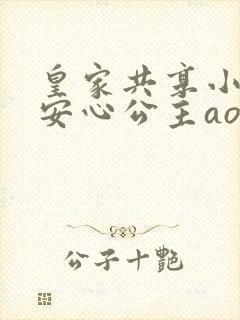 皇家共享小
安心公主ao
公子十艷